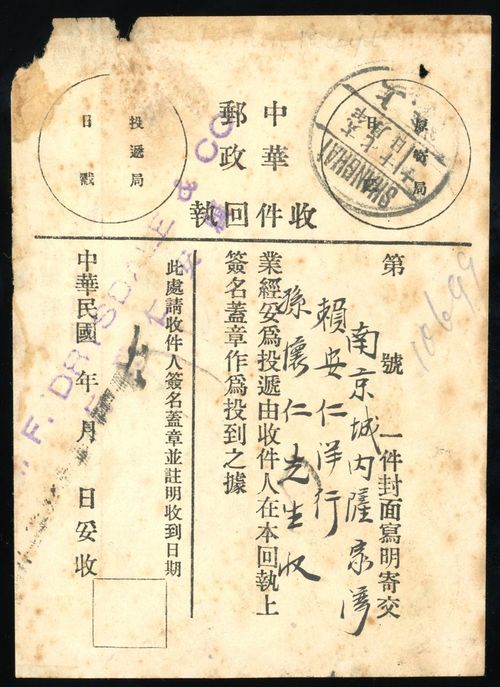 中華
郵政
收件回執
原寄局
SHANGHAI
上
投遞局
日戳
第 號一件封面寫明寄交
10699
南京城內薩家灣
賴安仁洋行
孫懷仁先生收
業經妥爲投遞由收件人在本回執上
簽名蓋章作爲投到之據
此處請收件人簽名蓋章並註明收到日期
中華民國 年 月 日妥收
F. DRYSDALE & CO